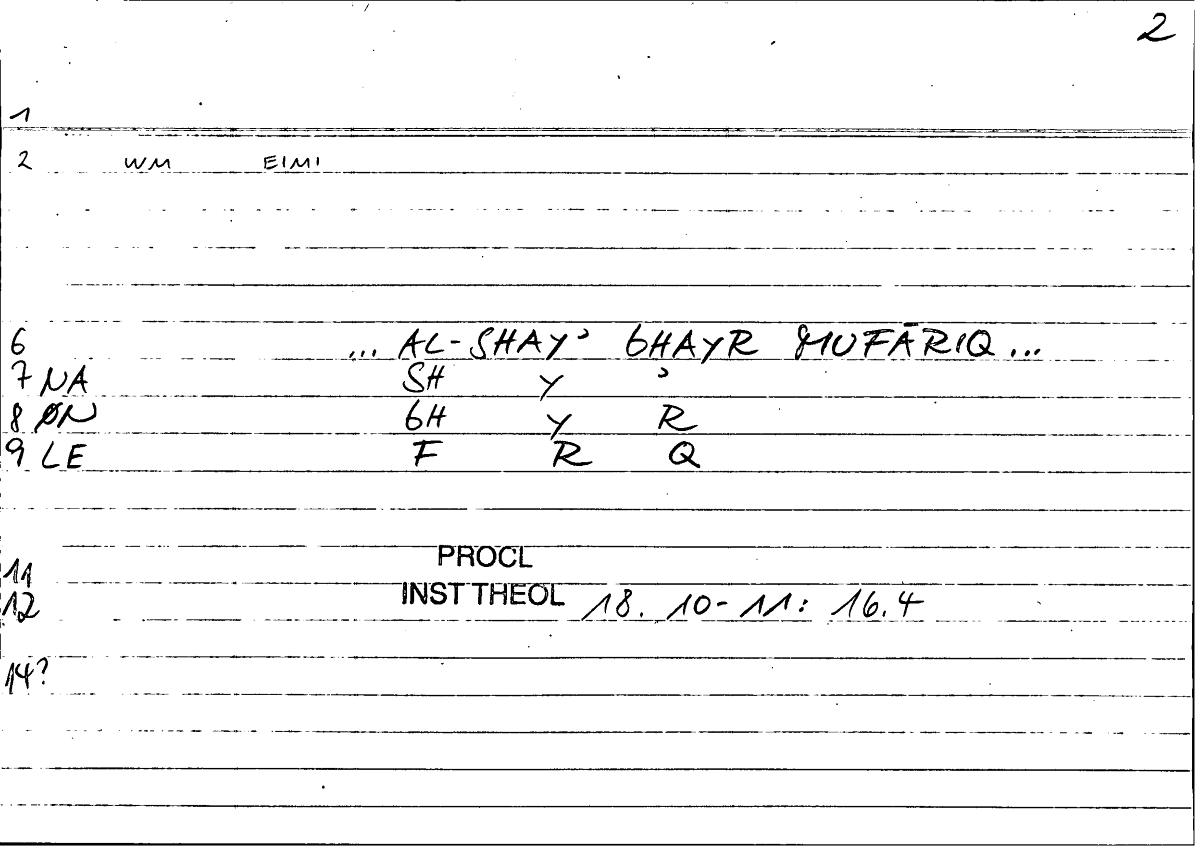 2
1
2 WM EIMI
6 ... AL-SHAYʾ GHAYR MUFĀRIQ ...
7 NA SH Y ʾ
8 ØN GH Y R
9 LE F R Q
PROCL
11
INST THEOL 18. 10-11: 16.4
12
14?